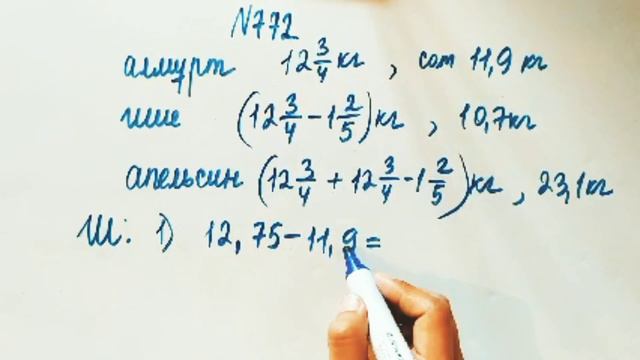 N772
алмурт 12 3/4 кг , сот 11,9 кг
шие (12 3/4 - 1 2/5) кг , 10,7кг
апельсин (12 3/4 + 12 3/4 - 1 2/5) кг , 23,1кг
Ш: 1) 12,75 - 11,9 =